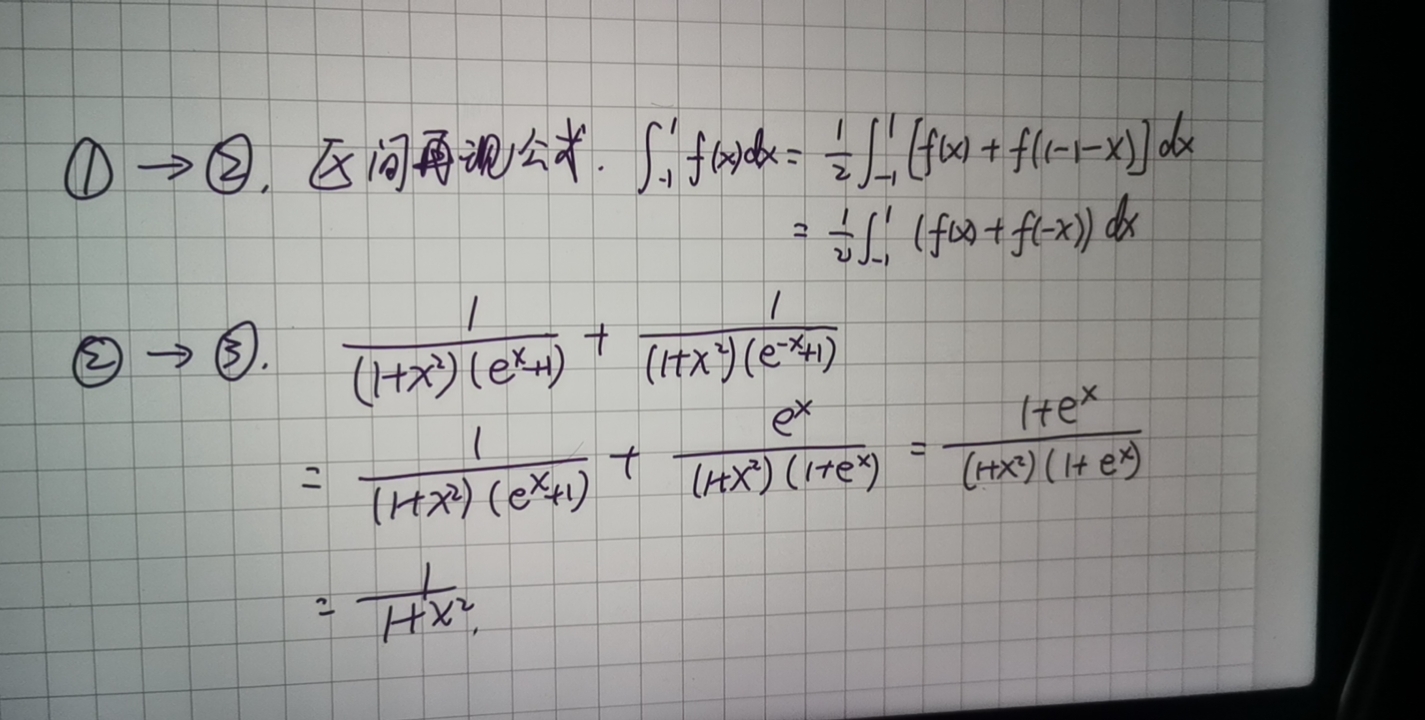 ① → ②. 区间再现公式. ∫₋₁¹ f(x)dx = 1/2 ∫₋₁¹ [f(x) + f(1-1-x)] dx
= 1/2 ∫₋₁¹ (f(x) + f(-x)) dx
② → ③. 1/((1+x²)(eˣ+1)) + 1/((1+x²)(e⁻ˣ+1))
= 1/((1+x²)(eˣ+1)) + eˣ/((1+x²)(1+eˣ)) = (1+eˣ)/((1+x²)(1+eˣ))
= 1/(1+x²).